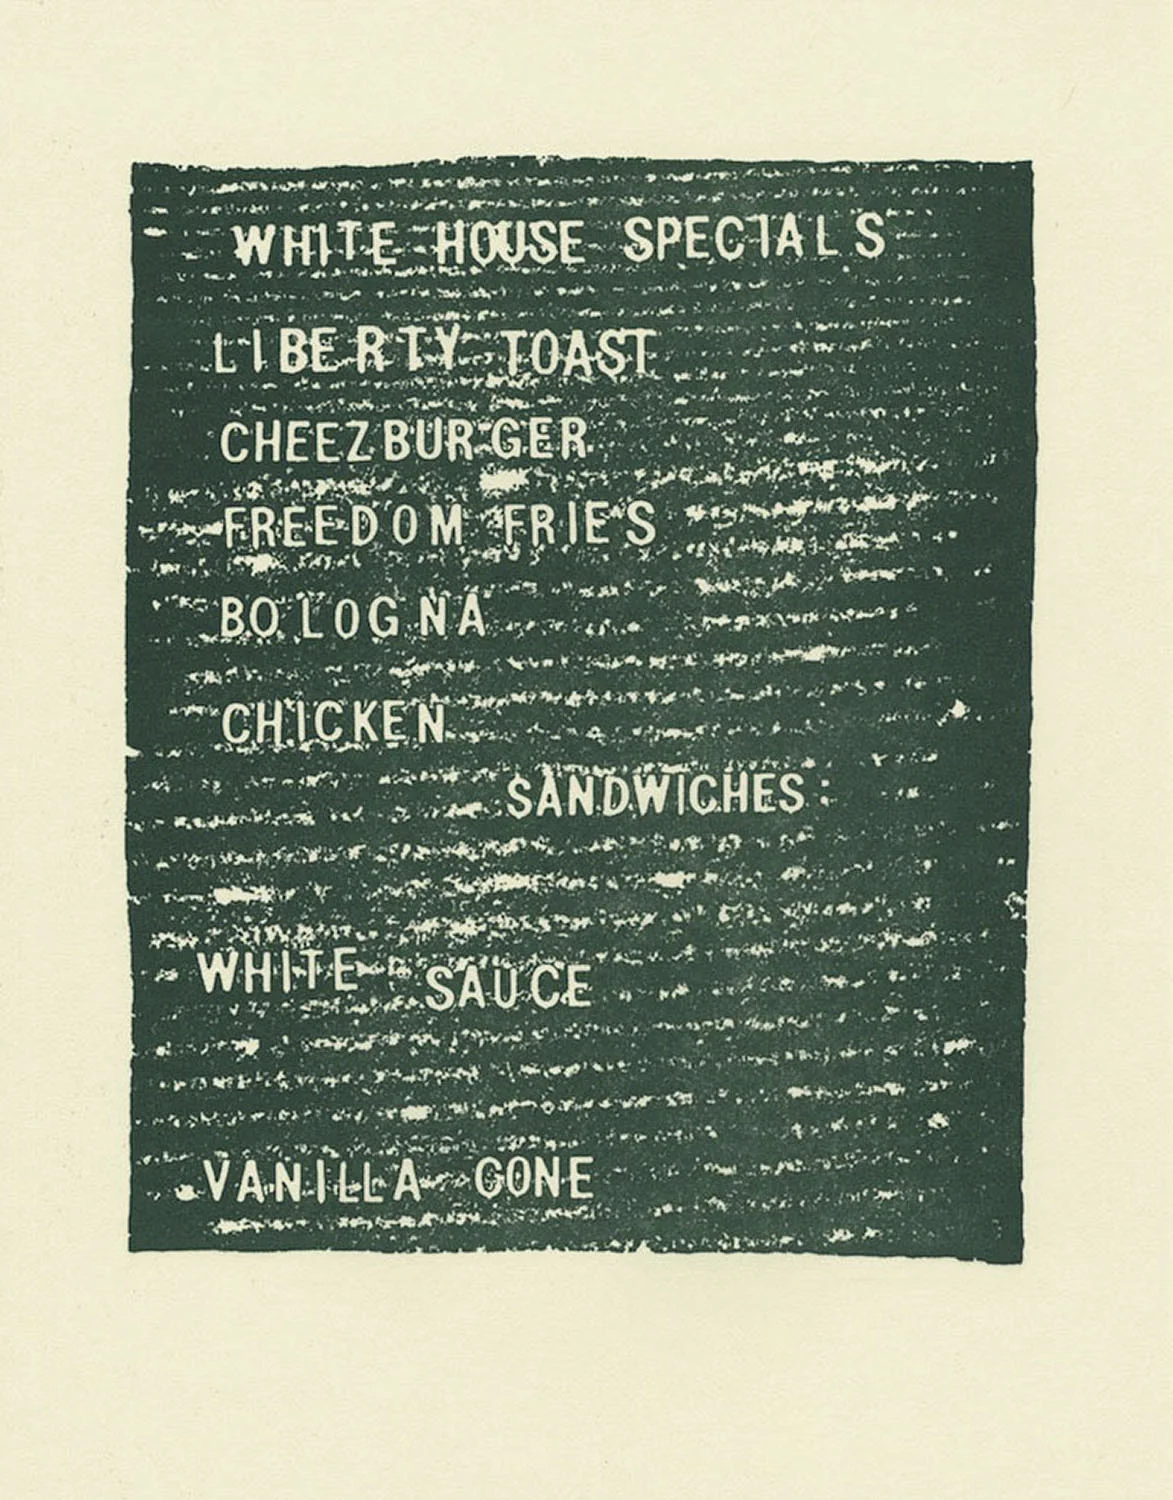 WHITE HOUSE SPECIALS
LIBERTY TOAST
CHEEZBURGER
FREEDOM FRIES
BOLOGNA
CHICKEN
SANDWICHES:
WHITE SAUCE
VANILLA CONE